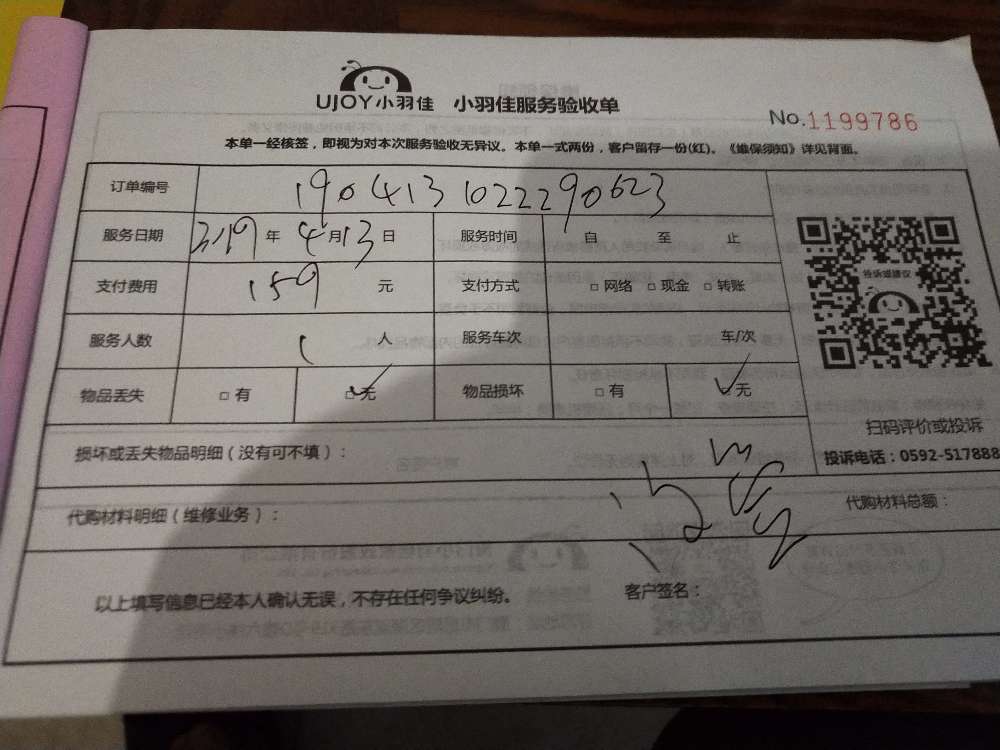 UJOY小羽佳 小羽佳服务验收单
No.1199786
本单一经核签，即视为对本次服务验收无异议。本单一式两份，客户留存一份(红)。《维保须知》详见背面。
订单编号 190413102290623
服务日期 2019 年 4 月 13 日 服务时间 自 至 止
支付费用 159 元 支付方式 □ 网络 □ 现金 □ 转账
服务人数 1 人 服务车次 车/次
物品丢失 □ 有 □ 无 物品损坏 □ 有 无
投诉或建议
扫码评价或投诉
投诉电话：0592-517888
损坏或丢失物品明细（没有可不填）：
代购材料明细（维修业务）： 代购材料总额：
以上填写信息已经本人确认无误，不存在任何争议纠纷。 客户签名：